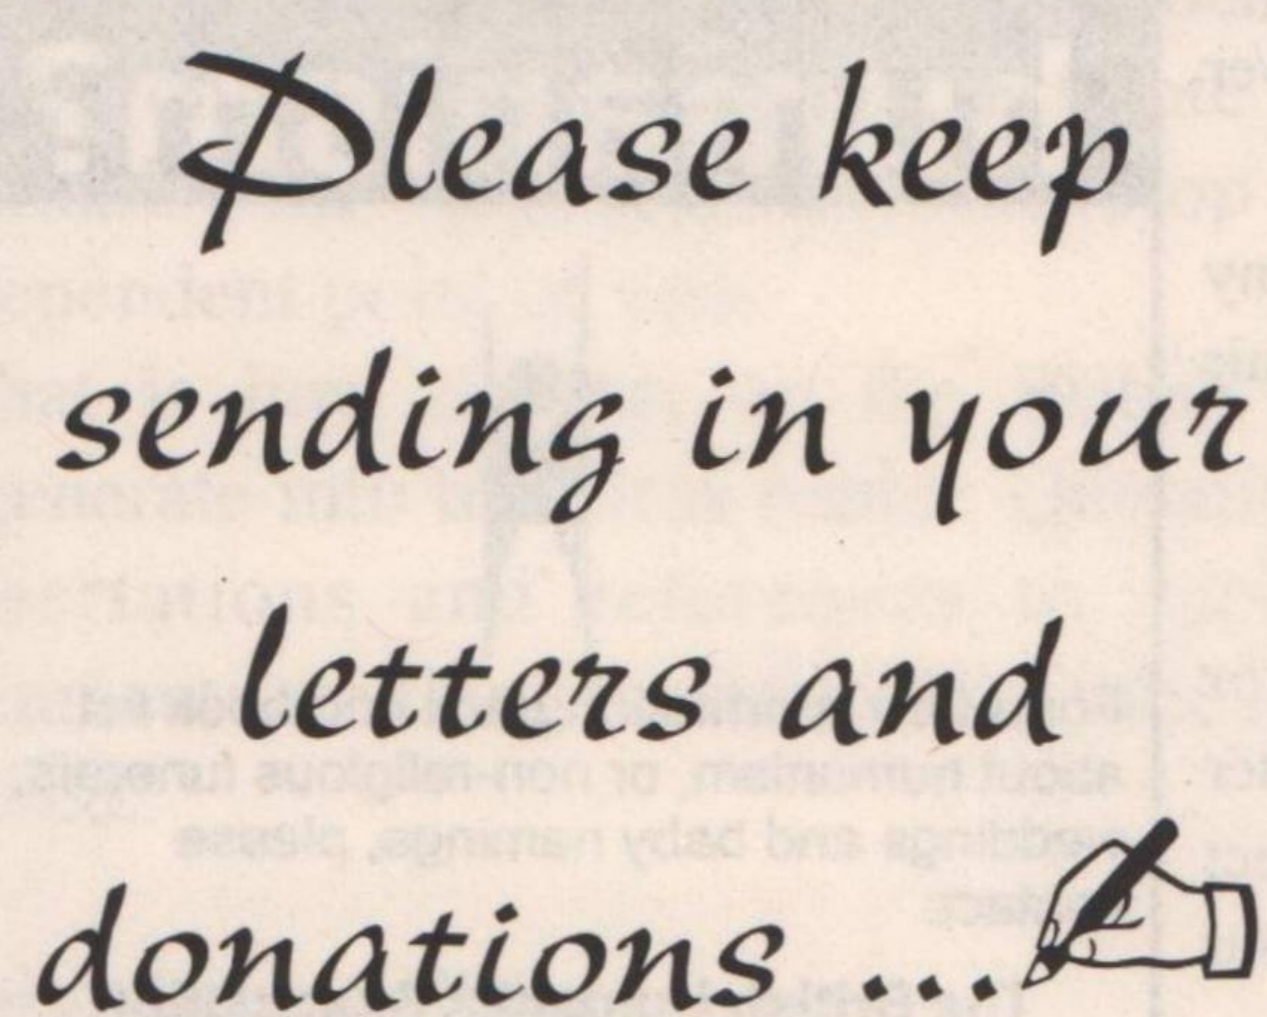 Please keep
sending in your
letters and
donations ...